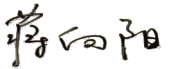 蒋向阳